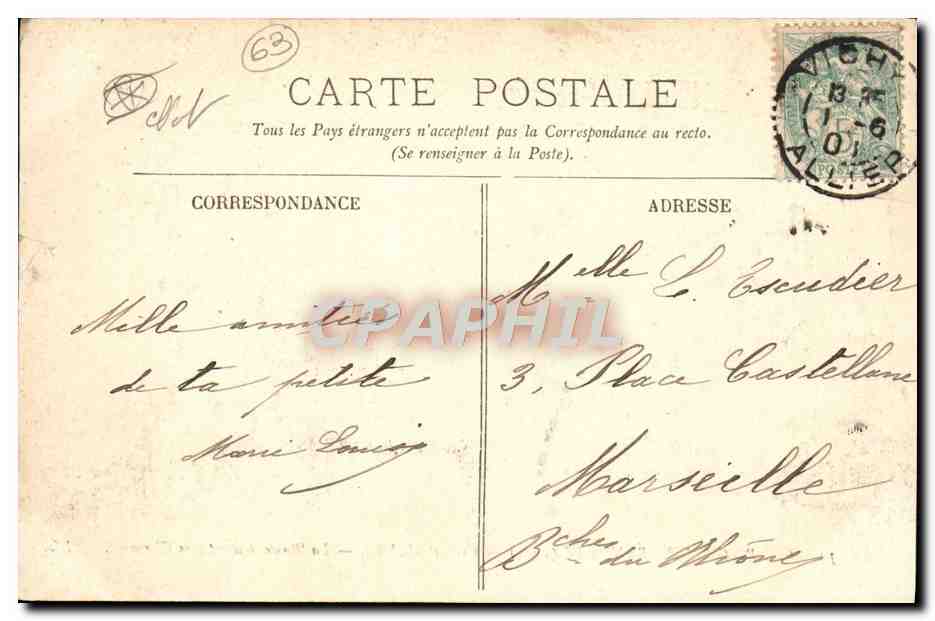 63
CARTE POSTALE
Tous les Pays étrangers n'acceptent pas la Correspondance au recto.
(Se renseigner à la Poste).
VICHY
ALLIER
CORRESPONDANCE
ADRESSE
Mille amitiés
de ta petite
Marie Louise
Melle L. Escudier
3, Place Castellane
Marseille
Bches du Rhône
CPAPHIL